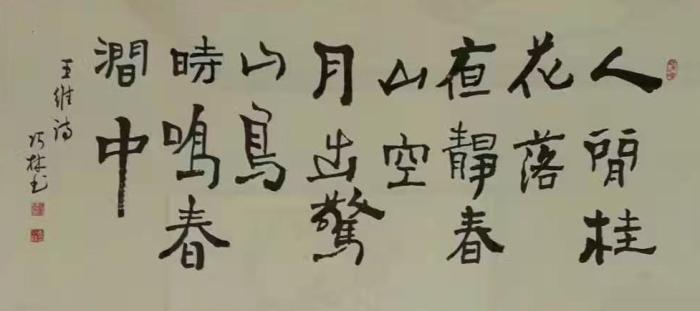 人閒桂
花落
夜靜春
山空
月出驚
山鳥
時鳴春
澗中
王維詩
巧林书